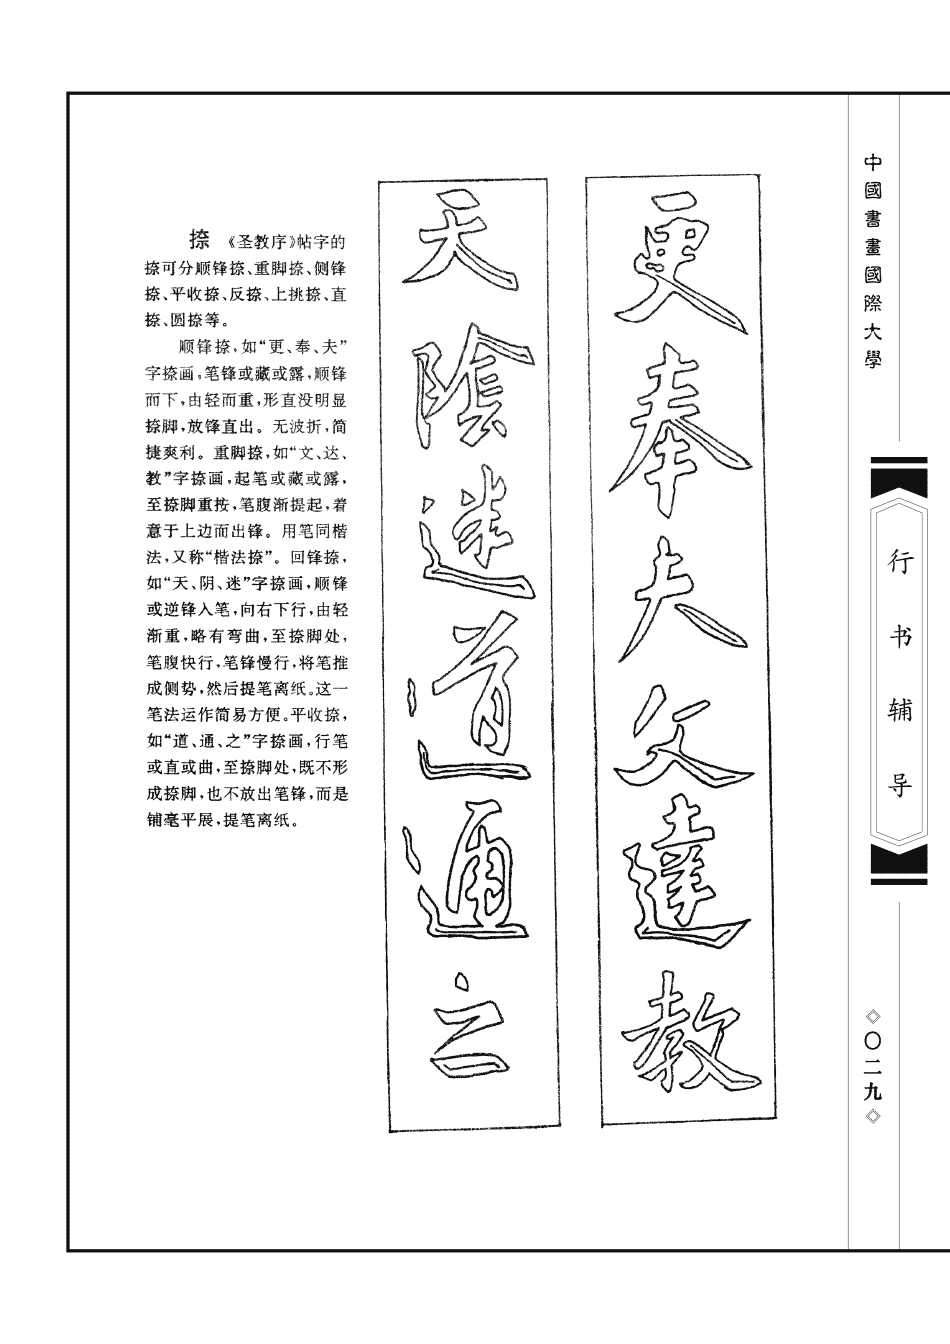 中國書畫國際大學
行书辅导
〇二九
更奉夫文達教
天陰迷道通之
捺　《圣教序》帖字的
捺可分顺锋捺、重脚捺、侧锋
捺、平收捺、反捺、上挑捺、直
捺、圆捺等。
顺锋捺，如“更、奉、夫”
字捺画，笔锋或藏或露，顺锋
而下，由轻而重，形直没明显
捺脚，放锋直出。无波折，简
捷爽利。重脚捺，如“文、达、
教”字捺画，起笔或藏或露，
至捺脚重按，笔腹渐提起，着
意于上边而出锋。用笔同楷
法，又称“楷法捺”。回锋捺，
如“天、阴、迷”字捺画，顺锋
或逆锋入笔，向右下行，由轻
渐重，略有弯曲，至捺脚处，
笔腹快行，笔锋慢行，将笔推
成侧势，然后提笔离纸。这一
笔法运作简易方便。平收捺，
如“道、通、之”字捺画，行笔
或直或曲，至捺脚处，既不形
成捺脚，也不放出笔锋，而是
铺毫平展，提笔离纸。